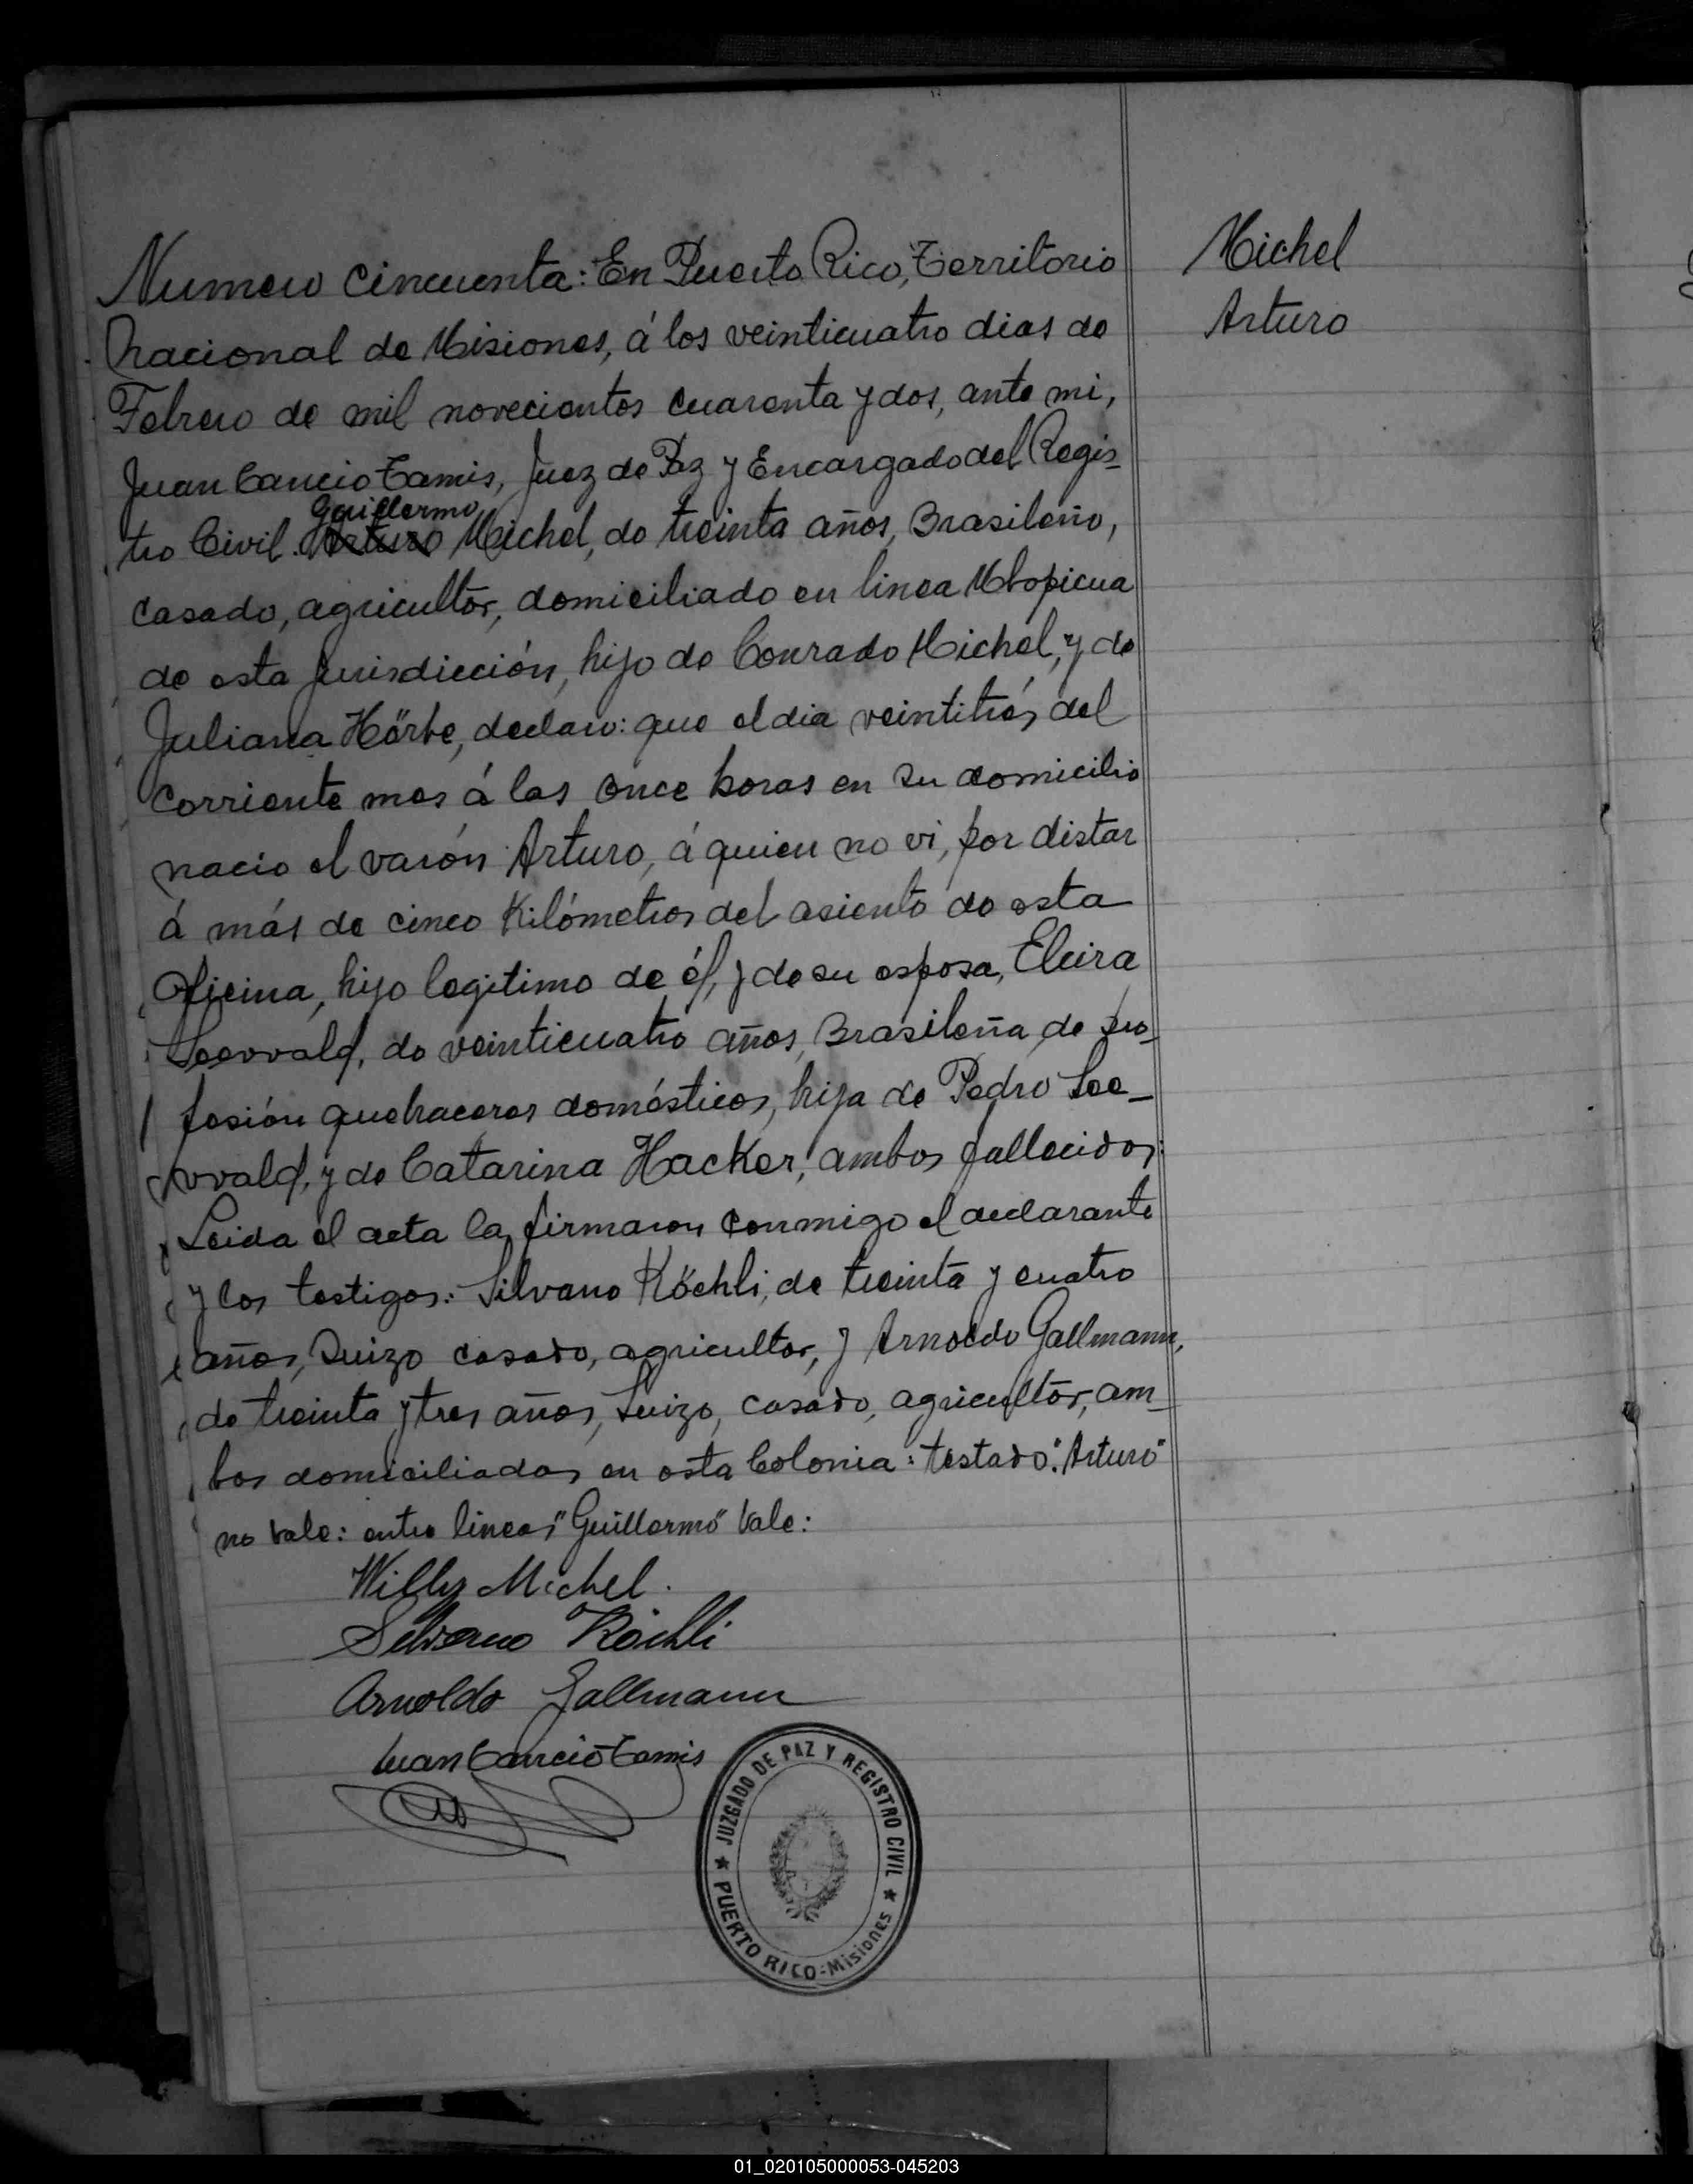 Numero cincuenta: En Puerto Rico, Territorio
Nacional de Misiones, á los veinticuatro dias de
Febrero de mil novecientos cuarenta y dos, ante mi,
Juan Cancio Tamis, Juez de Paz y Encargado del Regis-
Guillermo
tro Civil. Arturo Michel, de treinta años, Brasileño,
casado, agricultor, domiciliado en linea Mbopicua
de esta jurisdicción, hijo de Conrado Michel, y de
Juliana Hörbe, declaro: que el dia veintitrés del
corriente mes á las once horas en su domicilio
nacio el varón Arturo, á quien no vi, por distar
á más de cinco Kilómetros del asiento de esta
Oficina, hijo legitimo de él, y de su esposa, Elvira
Seewald, de veinticuatro años, Brasileña, de pro-
fesión quehaceres domésticos, hija de Pedro See-
wald, y de Catarina Hacker, ambos fallecidos:
Leida el acta la firmaron conmigo el declarante
y los testigos: Silvano Köchli, de treinta y cuatro
años, Suizo casado, agricultor, y Arnoldo Gallmann,
de treinta y tres años, Suizo, casado, agricultor, am-
bos domiciliados en esta Colonia: testado: "Arturo"
no vale: entre lineas "Guillermo" Vale:
Willy Michel.
Silvano Köchli
Arnoldo Gallmann
Juan Cancio Tamis
Michel
Arturo
JUZGADO DE PAZ Y REGISTRO CIVIL
PUERTO RICO-Misiones
01_020105000053-045203